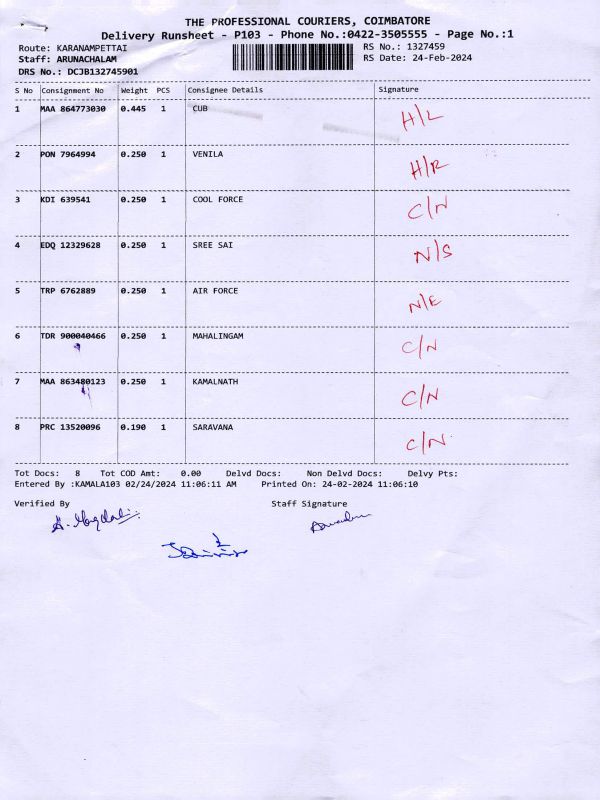 THE PROFESSIONAL COURIERS, COIMBATORE
Delivery Runsheet - P103 - Phone No.:0422-3505555 - Page No.:1
Route: KARANAMPETTAI RS No.: 1327459
Staff: ARUNACHALAM RS Date: 24-Feb-2024
DRS No.: DCJB132745901
S No Consignment No Weight PCS Consignee Details Signature
1 MAA 864773030 0.445 1 CUB H/L
2 PON 7964994 0.250 1 VENILA H/R
3 KDI 639541 0.250 1 COOL FORCE C/N
4 EDQ 12329628 0.250 1 SREE SAI N/S
5 TRP 6762889 0.250 1 AIR FORCE N/E
6 TDR 900040466 0.250 1 MAHALINGAM C/N
7 MAA 863480123 0.250 1 KAMALNATH C/N
8 PRC 13520096 0.190 1 SARAVANA C/N
Tot Docs: 8 Tot COD Amt: 0.00 Delvd Docs: Non Delvd Docs: Delvy Pts:
Entered By :KAMALA103 02/24/2024 11:06:11 AM Printed On: 24-02-2024 11:06:10
Verified By Staff Signature